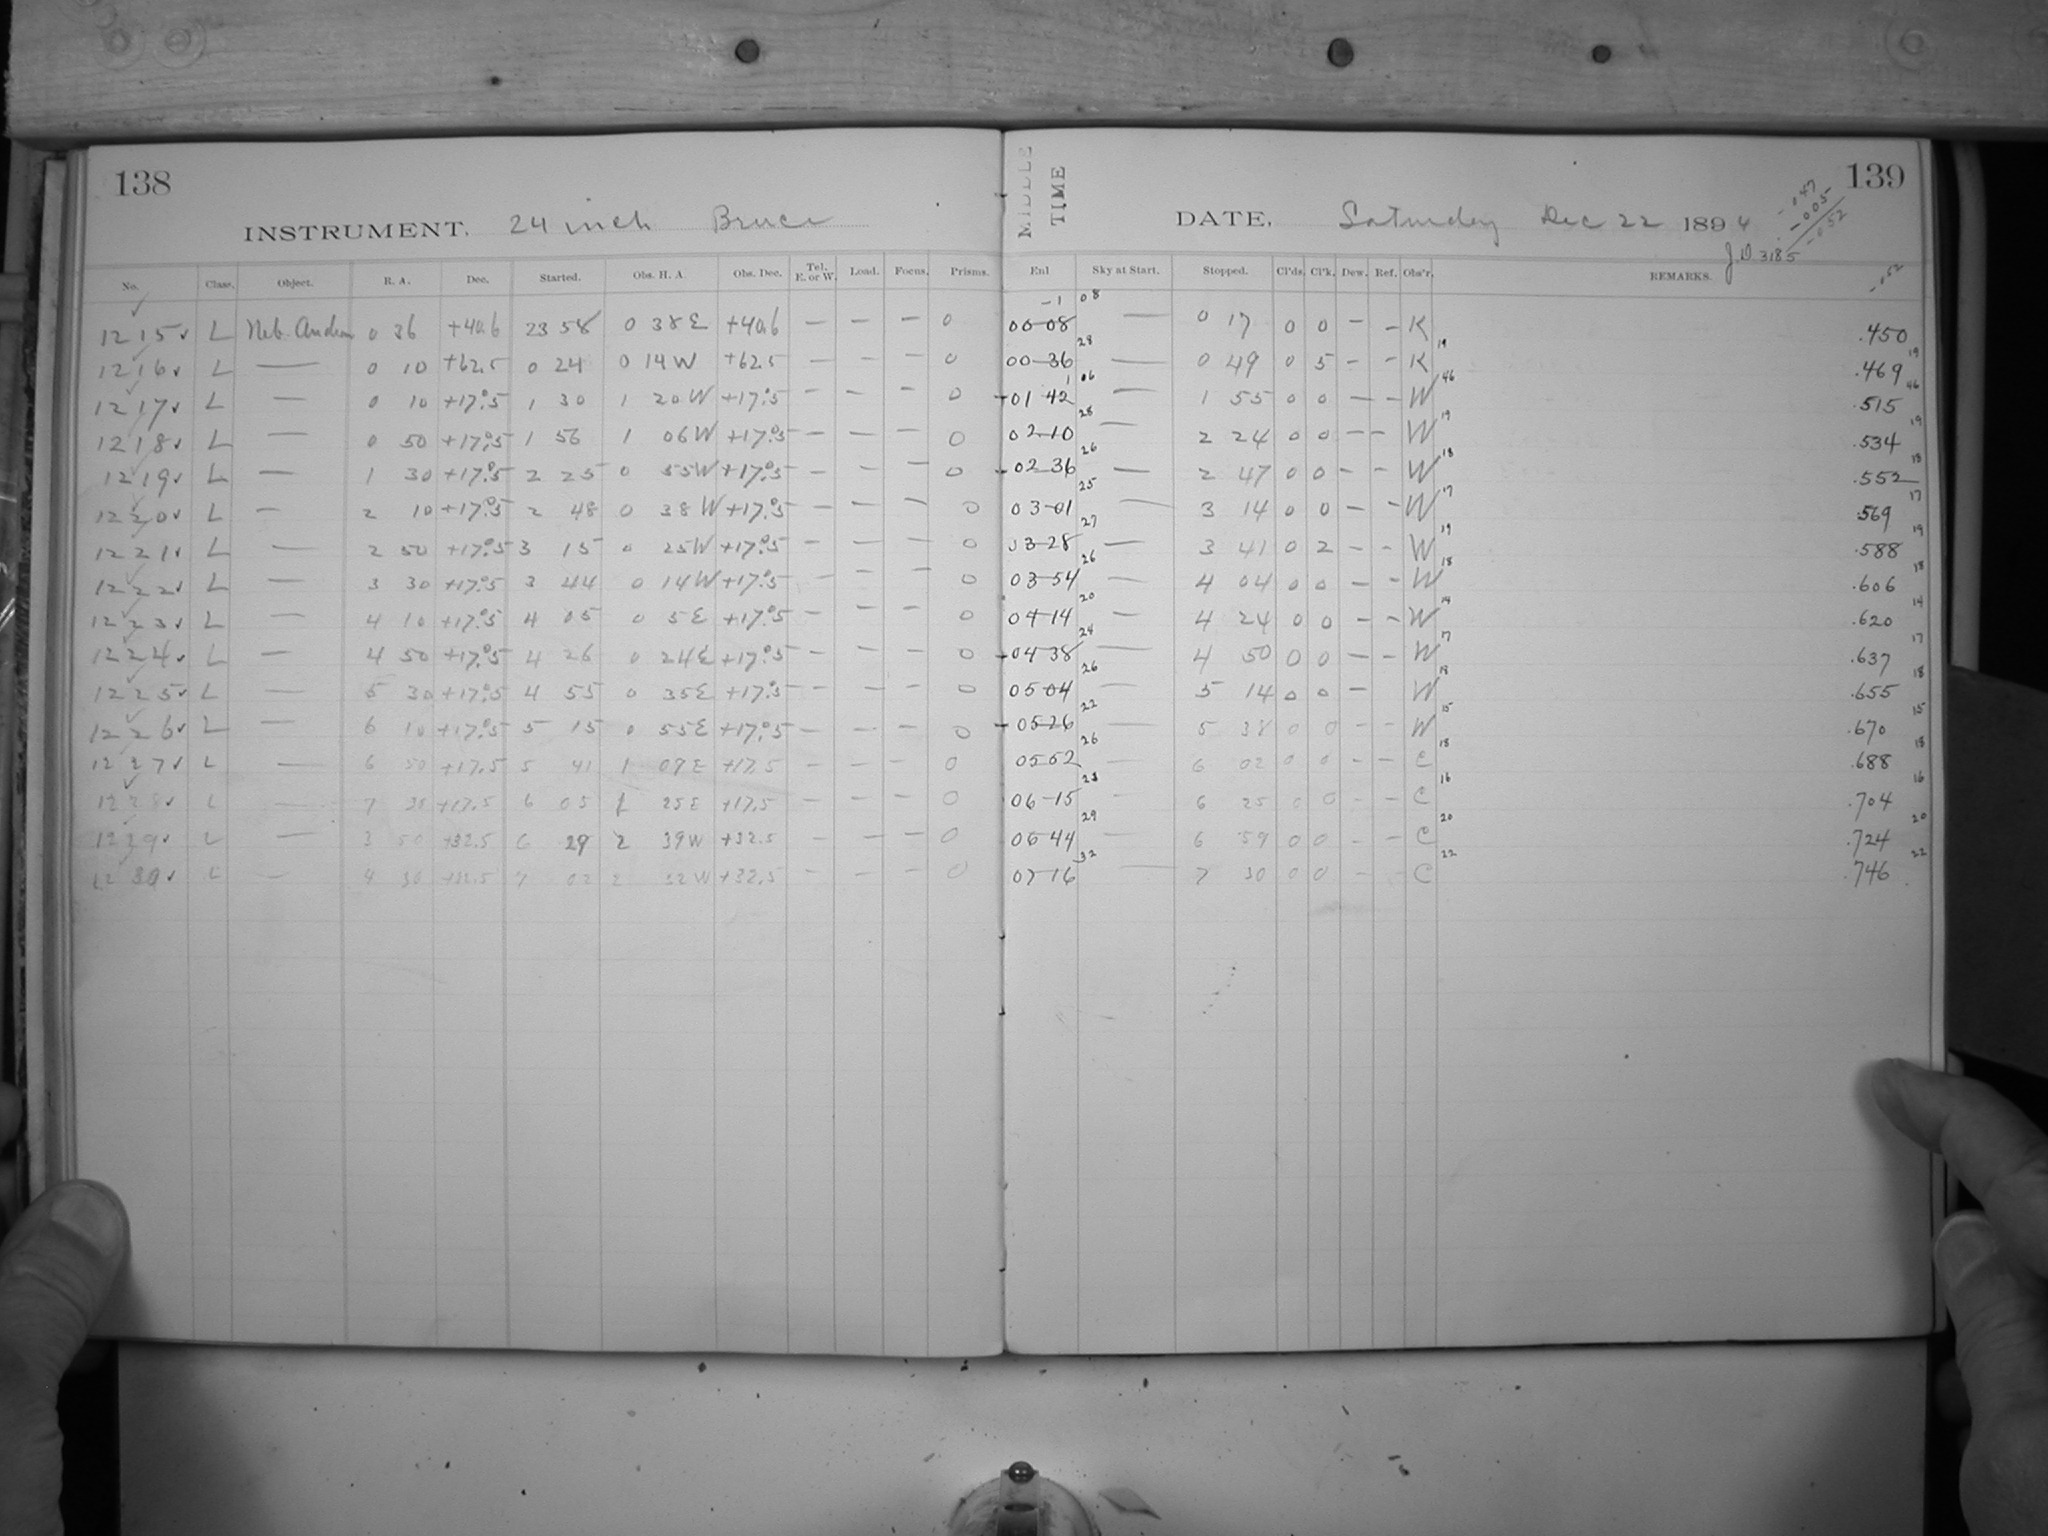 138
INSTRUMENT. 24 inch Bruce
No. Class. Object. R. A. Dec. Started. Obs. H. A. Obs. Dec. Tel. E. or W. Load. Focus. Prisms.
1215 L Neb. Androm 0 36 +40.6 23 58 0 38 E +40.6 — — — 0
1216 L — 0 10 +62.5 0 24 0 14 W +62.5 — — — 0
1217 L — 0 10 +17.5 1 30 1 20 W +17.5 — — 0
1218 L — 0 50 +17.5 1 56 1 06 W +17.5 — — — 0
1219 L — 1 30 +17.5 2 25 0 55 W +17.5 — — — 0
1220 L — 2 10 +17.5 2 48 0 38 W +17.5 — — — 0
1221 L — 2 50 +17.5 3 15 0 25 W +17.5 — — — 0
1222 L — 3 30 +17.5 3 44 0 14 W +17.5 — — — 0
1223 L — 4 10 +17.5 4 05 0 5 E +17.5 — — — 0
1224 L — 4 50 +17.5 4 26 0 24 E +17.5 — — — 0
1225 L — 5 30 +17.5 4 55 0 35 E +17.5 — — — 0
1226 L — 6 10 +17.5 5 15 0 55 E +17.5 — — — 0
1227 L — 6 50 +17.5 5 41 1 09 E +17.5 — — — 0
1228 L — 7 30 +17.5 6 05 1 25 E +17.5 — — — 0
1229 L — 3 50 +32.5 6 29 2 39 W +32.5 — — — 0
1230 L — 4 30 +32.5 7 02 2 32 W +32.5 — — — 0
MIDDLE TIME
139
DATE. Saturday Dec 22 1894
-.047
-.005
-.052
J.D. 3185
Enl Sky at Start. Stopped. Cl'ds. Cl'k. Dew. Ref. Obs'r. REMARKS.
-1 08 -.052
00-08 — 0 17 0 0 — — K .450
28 19 19
00-36 — 0 49 0 5 — — K .469
1 06 46 46
01 42 — 1 55 0 0 — — W .515
28 19 19
02-10 — 2 24 0 0 — — W .534
26 18 18
02 36 — 2 47 0 0 — — W .552
25 17 17
03-01 — 3 14 0 0 — — W .569
27 19 19
03-28 — 3 41 0 2 — — W .588
26 18 18
03-54 — 4 04 0 0 — — W .606
20 14 14
04-14 — 4 24 0 0 — — W .620
24 17 17
04-38 — 4 50 0 0 — — W .637
26 18 18
05 04 — 5 14 0 0 — W .655
22 15 15
05-26 — 5 38 0 0 — — W .670
26 18 18
05 52 — 6 02 0 0 — — C .688
23 16 16
06-15 — 6 25 0 0 — — C .704
29 20 20
06-44 — 6 59 0 0 — — C .724
32 22 22
07-16 — 7 30 0 0 — — C .746